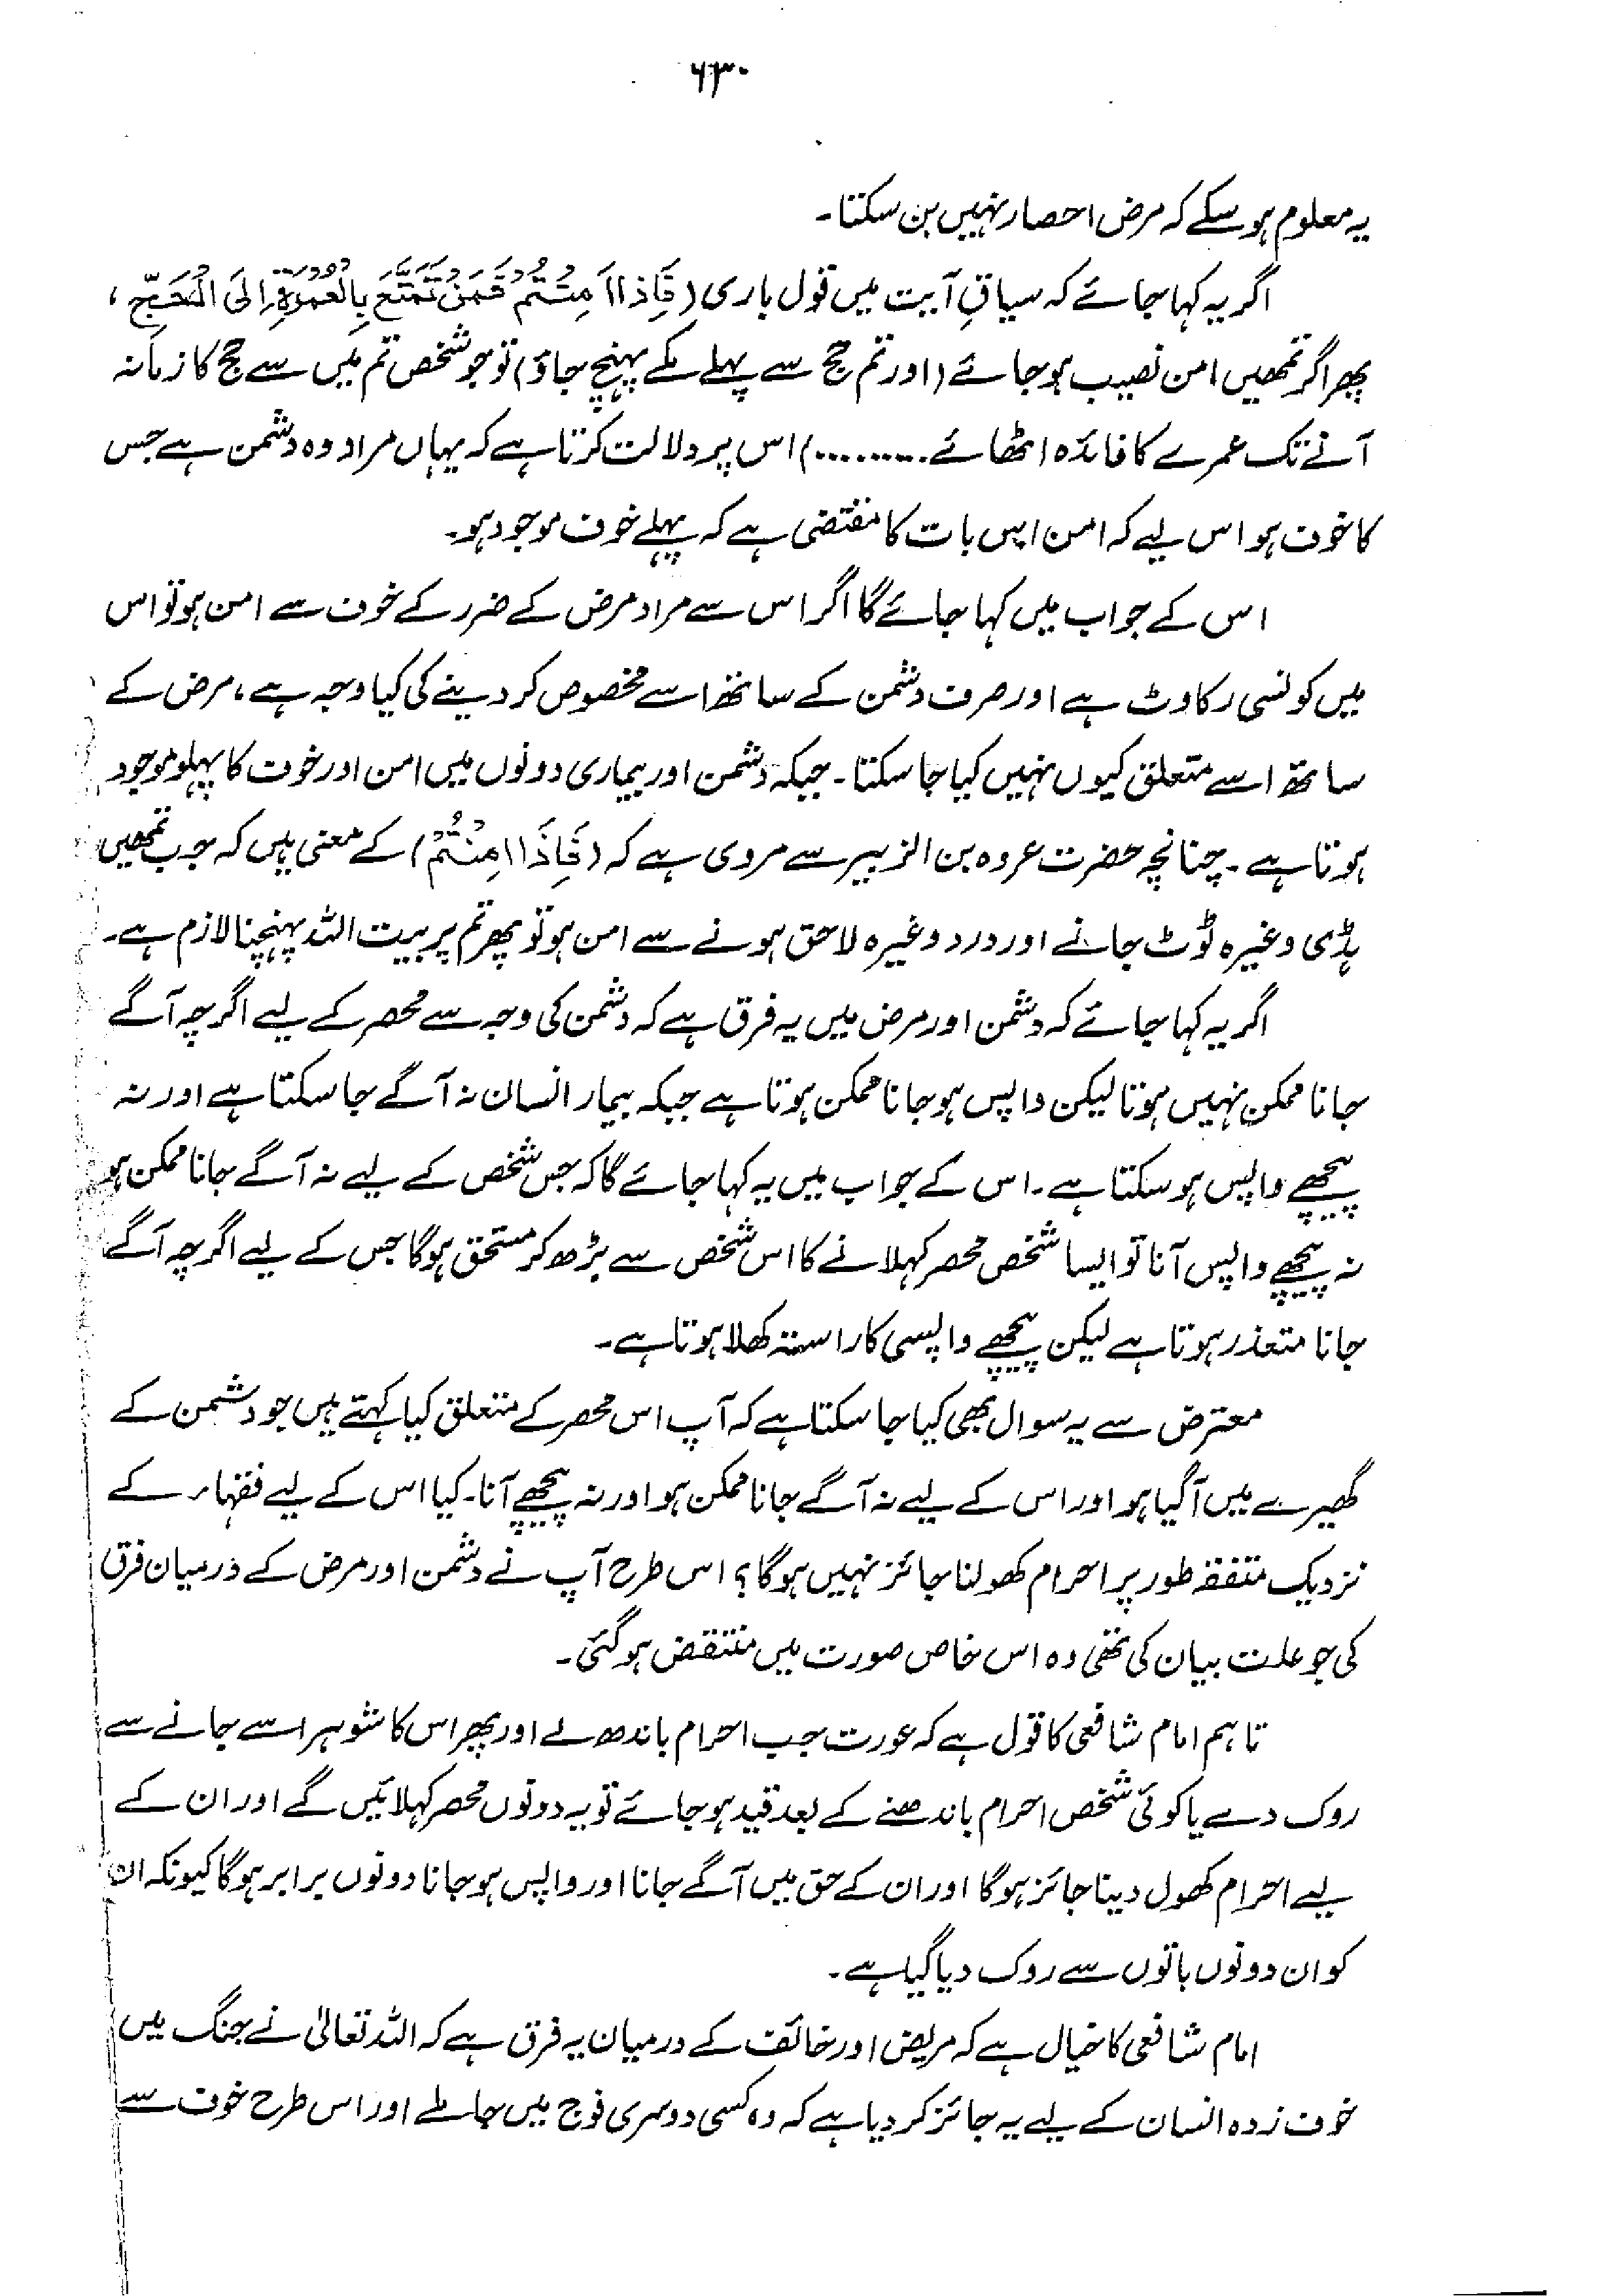 ۶۳۰
یہ معلوم ہو سکے کہ مرض احصار نہیں بن سکتا۔
اگر یہ کہا جائے کہ سیاقِ آیت میں قول باری (فَاِذَا اَمِنْتُمْ فَمَنْ تَمَتَّعَ بِالْعُمْرَةِ اِلَی الْحَجِّ،
پھر اگر تمھیں امن نصیب ہو جائے (اور تم حج سے پہلے مکے پہنچ جاؤ) تو جو شخص تم میں سے حج کا زمانہ
آنے تک عمرے کا فائدہ اٹھائے.........) اس پر دلالت کرتا ہے کہ یہاں مراد وہ دشمن ہے جس
کا خوف ہو اس لیے کہ امن اس بات کا مقتضی ہے کہ پہلے خوف موجود ہو۔
اس کے جواب میں کہا جائے گا اگر اس سے مراد مرض کے ضرر کے خوف سے امن ہو تو اس
میں کونسی رکاوٹ ہے اور صرف دشمن کے ساتھ اسے مخصوص کر دینے کی کیا وجہ ہے، مرض کے
ساتھ اسے متعلق کیوں نہیں کیا جا سکتا۔ جبکہ دشمن اور بیماری دونوں میں امن اور خوف کا پہلو موجود
ہوتا ہے۔ چنانچہ حضرت عروہ بن الزبیر سے مروی ہے کہ (فَاِذَا اَمِنْتُمْ) کے معنی ہیں کہ جب تمھیں
ہڈی وغیرہ ٹوٹ جانے اور درد وغیرہ لاحق ہونے سے امن ہو تو پھر تم پر بیت اللہ پہنچنا لازم ہے۔
اگر یہ کہا جائے کہ دشمن اور مرض میں یہ فرق ہے کہ دشمن کی وجہ سے محصر کے لیے اگرچہ آگے
جانا ممکن نہیں ہوتا لیکن واپس ہو جانا ممکن ہوتا ہے جبکہ بیمار انسان نہ آگے جا سکتا ہے اور نہ
پیچھے واپس ہو سکتا ہے۔ اس کے جواب میں یہ کہا جائے گا کہ جس شخص کے لیے نہ آگے جانا ممکن ہو
نہ پیچھے واپس آنا تو ایسا شخص محصر کہلانے کا اس شخص سے بڑھ کر مستحق ہوگا جس کے لیے اگرچہ آگے
جانا متعذر ہوتا ہے لیکن پیچھے واپسی کا راستہ کھلا ہوتا ہے۔
معترض سے یہ سوال بھی کیا جا سکتا ہے کہ آپ اس محصر کے متعلق کیا کہتے ہیں جو دشمن کے
گھیرے میں آگیا ہو اور اس کے لیے نہ آگے جانا ممکن ہو اور نہ پیچھے آنا۔ کیا اس کے لیے فقہاء کے
نزدیک متفقہ طور پر احرام کھولنا جائز نہیں ہوگا؟ اس طرح آپ نے دشمن اور مرض کے درمیان فرق
کی جو علت بیان کی تھی وہ اس خاص صورت میں منتقض ہوگئی۔
تاہم امام شافعی کا قول ہے کہ عورت جب احرام باندھ لے اور پھر اس کا شوہر اسے جانے سے
روک دے یا کوئی شخص احرام باندھنے کے بعد قید ہو جائے تو یہ دونوں محصر کہلائیں گے اور ان کے
لیے احرام کھول دینا جائز ہوگا اور ان کے حق میں آگے جانا اور واپس ہو جانا دونوں برابر ہوگا کیونکہ ان
کو ان دونوں باتوں سے روک دیا گیا ہے۔
امام شافعی کا خیال ہے کہ مریض اور خائف کے درمیان یہ فرق ہے کہ اللہ تعالیٰ نے جنگ میں
خوف زدہ انسان کے لیے یہ جائز کر دیا ہے کہ وہ کسی دوسری فوج میں جا ملے اور اس طرح خوف سے